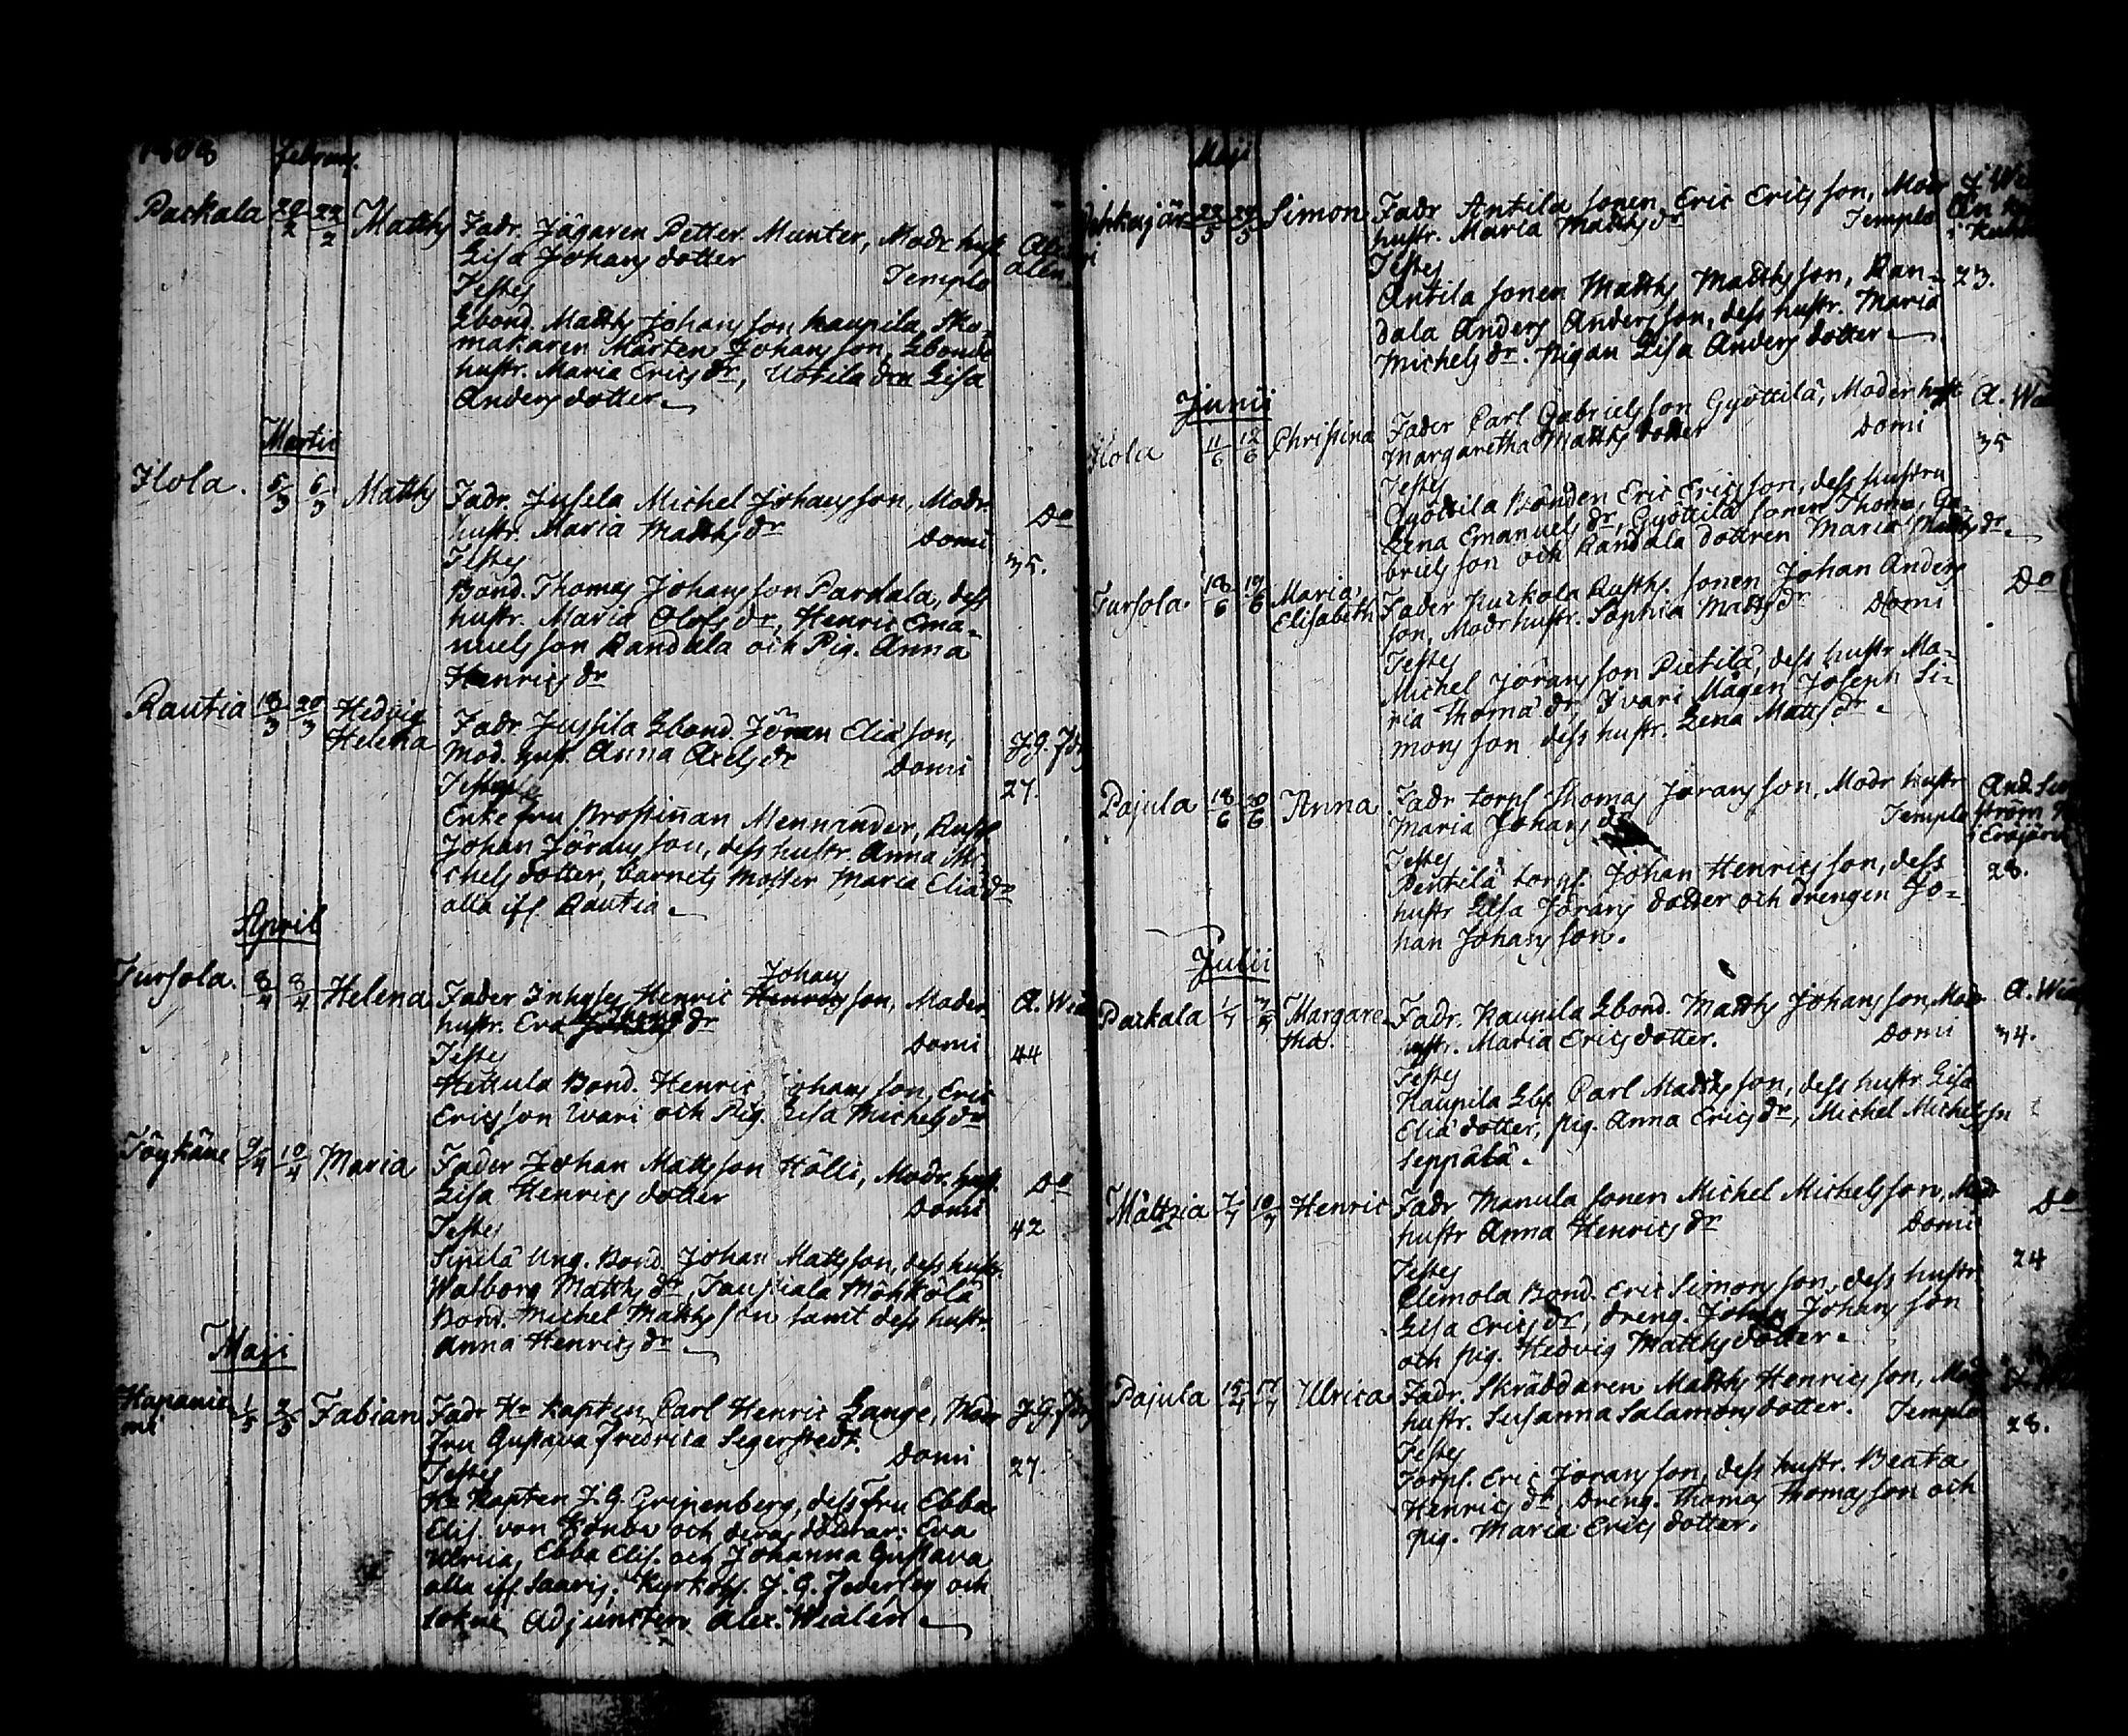 1808 Februarij.
Packala 20/2 22/2 Matths Fadr. Jägaren Petter Munter, Modr hust.
Lisa Johansdotter Templo
Testes
Lbond. Matths Johansson Kaupila, Sko-
makaren Mårten Johansson, Lbonde
hustr. Maria Ericsdr, Uotila drn Lisa
Andersdotter.
Martii
Ilola. 5/3 6/3 Matths Fadr. Jusela Michel Johansson, Modr. Do
hustr. Maria Matthsdr Domi
Testes 35.
Bond. Thomas Johansson Pardala, dess
hustr. Maria Olofsdr, Henric Ema-
nuelsson Randala och Pig. Anna
Henricsdr
Rautia 18/3 20/3 Hedvig Helena Fadr. Jussila Lbond. Jöran Eliæson, J. G.
Mod. hust. Anna Axelsdr Domi
Testes 27.
Enkefru Prostinnan Mennander, Rusth.
Johan Jöransson, dess hustr. Anna Mi-
chelsdotter, barnets Moster Maria Eliædr
alla ifr. Rautia.
April
Tursola. 8/4 8/4 Helena Fader Inhyses Henric Johansson, Moder A. Wia
hustr. Eva dr Domi
Testes 44
Hettula Bond. Henric Johansson, Eric
Ericsson Ivari och Pig. Lisa Michelsdr
Töykäne 9/4 10/4 Maria Fader Johan Mattsson Hölli, Modr. hust. Do
Lisa Henricsdotter Domi
Testes 42
Sipilä Ung. Bond. Johan Mattsson, dess hustr.
Walborg Matthsdr, Taustiala Möhkölä
Bond. Michel Matthsson samt dess hustr.
Anna Henricsdr
Maji
Hapanie mi 1/5 2/5 Fabian Fadr Hr Kapten Carl Henric Lange, Modr J. G.
Fru Gustava Fredrica Segerstedt. Domi
Testes 27.
Hr Kapten J. G. Gripenberg, dess Fru Ebba
Elis. von och deras döttrar: Eva
Ulrica, Ebba Elis. och Johanna Gustava
alla ifr. Saaris, Kyrkohs. J. G. och
Sokne Adjuncten Alex. Wialén
Maji
22/5 Simon Fadr Antila sonen Eric Ericsson, Modr
hustr. Maria Matthsdr Templo
Testes
Antila sonen Matths Matthsson, Ran- 23.
dala Anders Andersson, dess hustr. Maria
Michelsdr. Pigan Lisa Andersdotter
Junii
Ilola 11/6 12/6 Christina Fader Carl Gabrielsson Gyöttilä, Moder hust A. Wia
Margaretha Matthsdotter Domi 35
Testes
Gyöttilä Bonden Eric Ericsson, dess hustru
Lena Emanuelsdr, Gyöttilä sonen Thomas Ga-
brielsson och Randala dottren Maria Matthsdr.
Tursola. 18/6 19/6 Maria Elisabeth Fader Kuckola Rusth. sonen Johan Anders Do
son, Modr hustr. Sophia Mattsdr Domi
Testes
Michel Jöransson Pietilä, dess hustr Ma-
ria Thomædr, Ivari Mågen Joseph Si-
monsson dess hustr. Lena Mattsdr.
Pajula 18/6 20/6 Anna Fadr torp. Thomas Jöransson, Modr hustr
Maria Johansdr Templo
Testes
Penttilä torp. Johan Henricsson, dess 28.
hustr Lisa Jöransdotter och Drengen Jo-
han Johansson.
Julii
Packala 1/7 3/7 Margaretha. Fadr. Kaupila Lbond. Matths Johansson, Modr A. Wia
hustr. Maria Ericsdotter. Domi 34.
Testes
Kaupila Lbf. Carl Matthsson, dess hustr Lisa
Eliædotter, pig. Anna Ericsdr, Michel Michelssn
Seppälä.
Mältzia 7/7 10/7 Henric Fadr Manula sonen Michel Michelsson, Modr Do
hustr Anna Henricsdr Domi
Testes 24
Elimola Bond. Eric Simonsson, dess hustr
Lisa Ericsdr, Dreng. Johan Johansson
och pig. Hedvig Matthsdotter.
Pajula 15/7 17/7 Ulrica Fadr. Skräddaren Matths Henricsson, Modr
hustr. Susanna Salamonsdotter. Templo 28.
Testes
Torp. Eric Jöransson, dess hustr. Beata
Henricsdr, Dreng. Thomas Thomasson och
pig. Maria Ericsdotter.